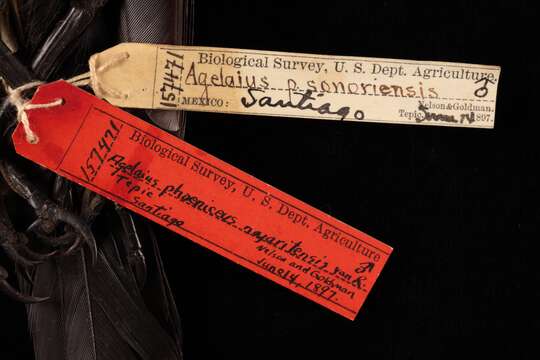 157471
Biological Survey, U. S. Dept. Agriculture.
Agelaius p. sonoriensis ♂
MEXICO: Santiago
Nelson & Goldman.
Tepic, June 14, 1897.
157471
Biological Survey, U. S. Dept. Agriculture
Agelaius phoeniceus nayaritensis
Tepic ♂
Santiago
Nelson and Goldman
June 14, 1897.